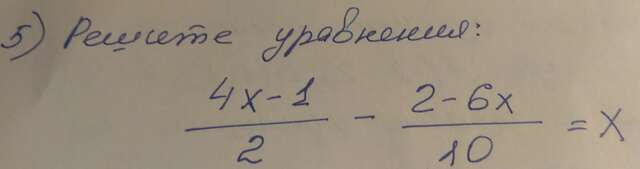 5) Решите уравнения:
(4x-1)/2 - (2-6x)/10 = x